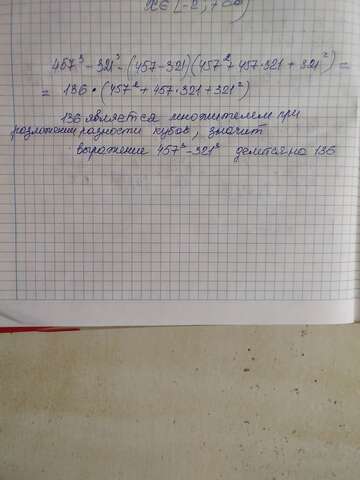 x ∈ [-2; +∞)
457³ - 321³ - (457 - 321)(457² + 457·321 + 321²) =
= 136 · (457² + 457·321 + 321²)
136 является множителем при
разложении разности кубов, значит
выражение 457³ - 321³ делится на 136